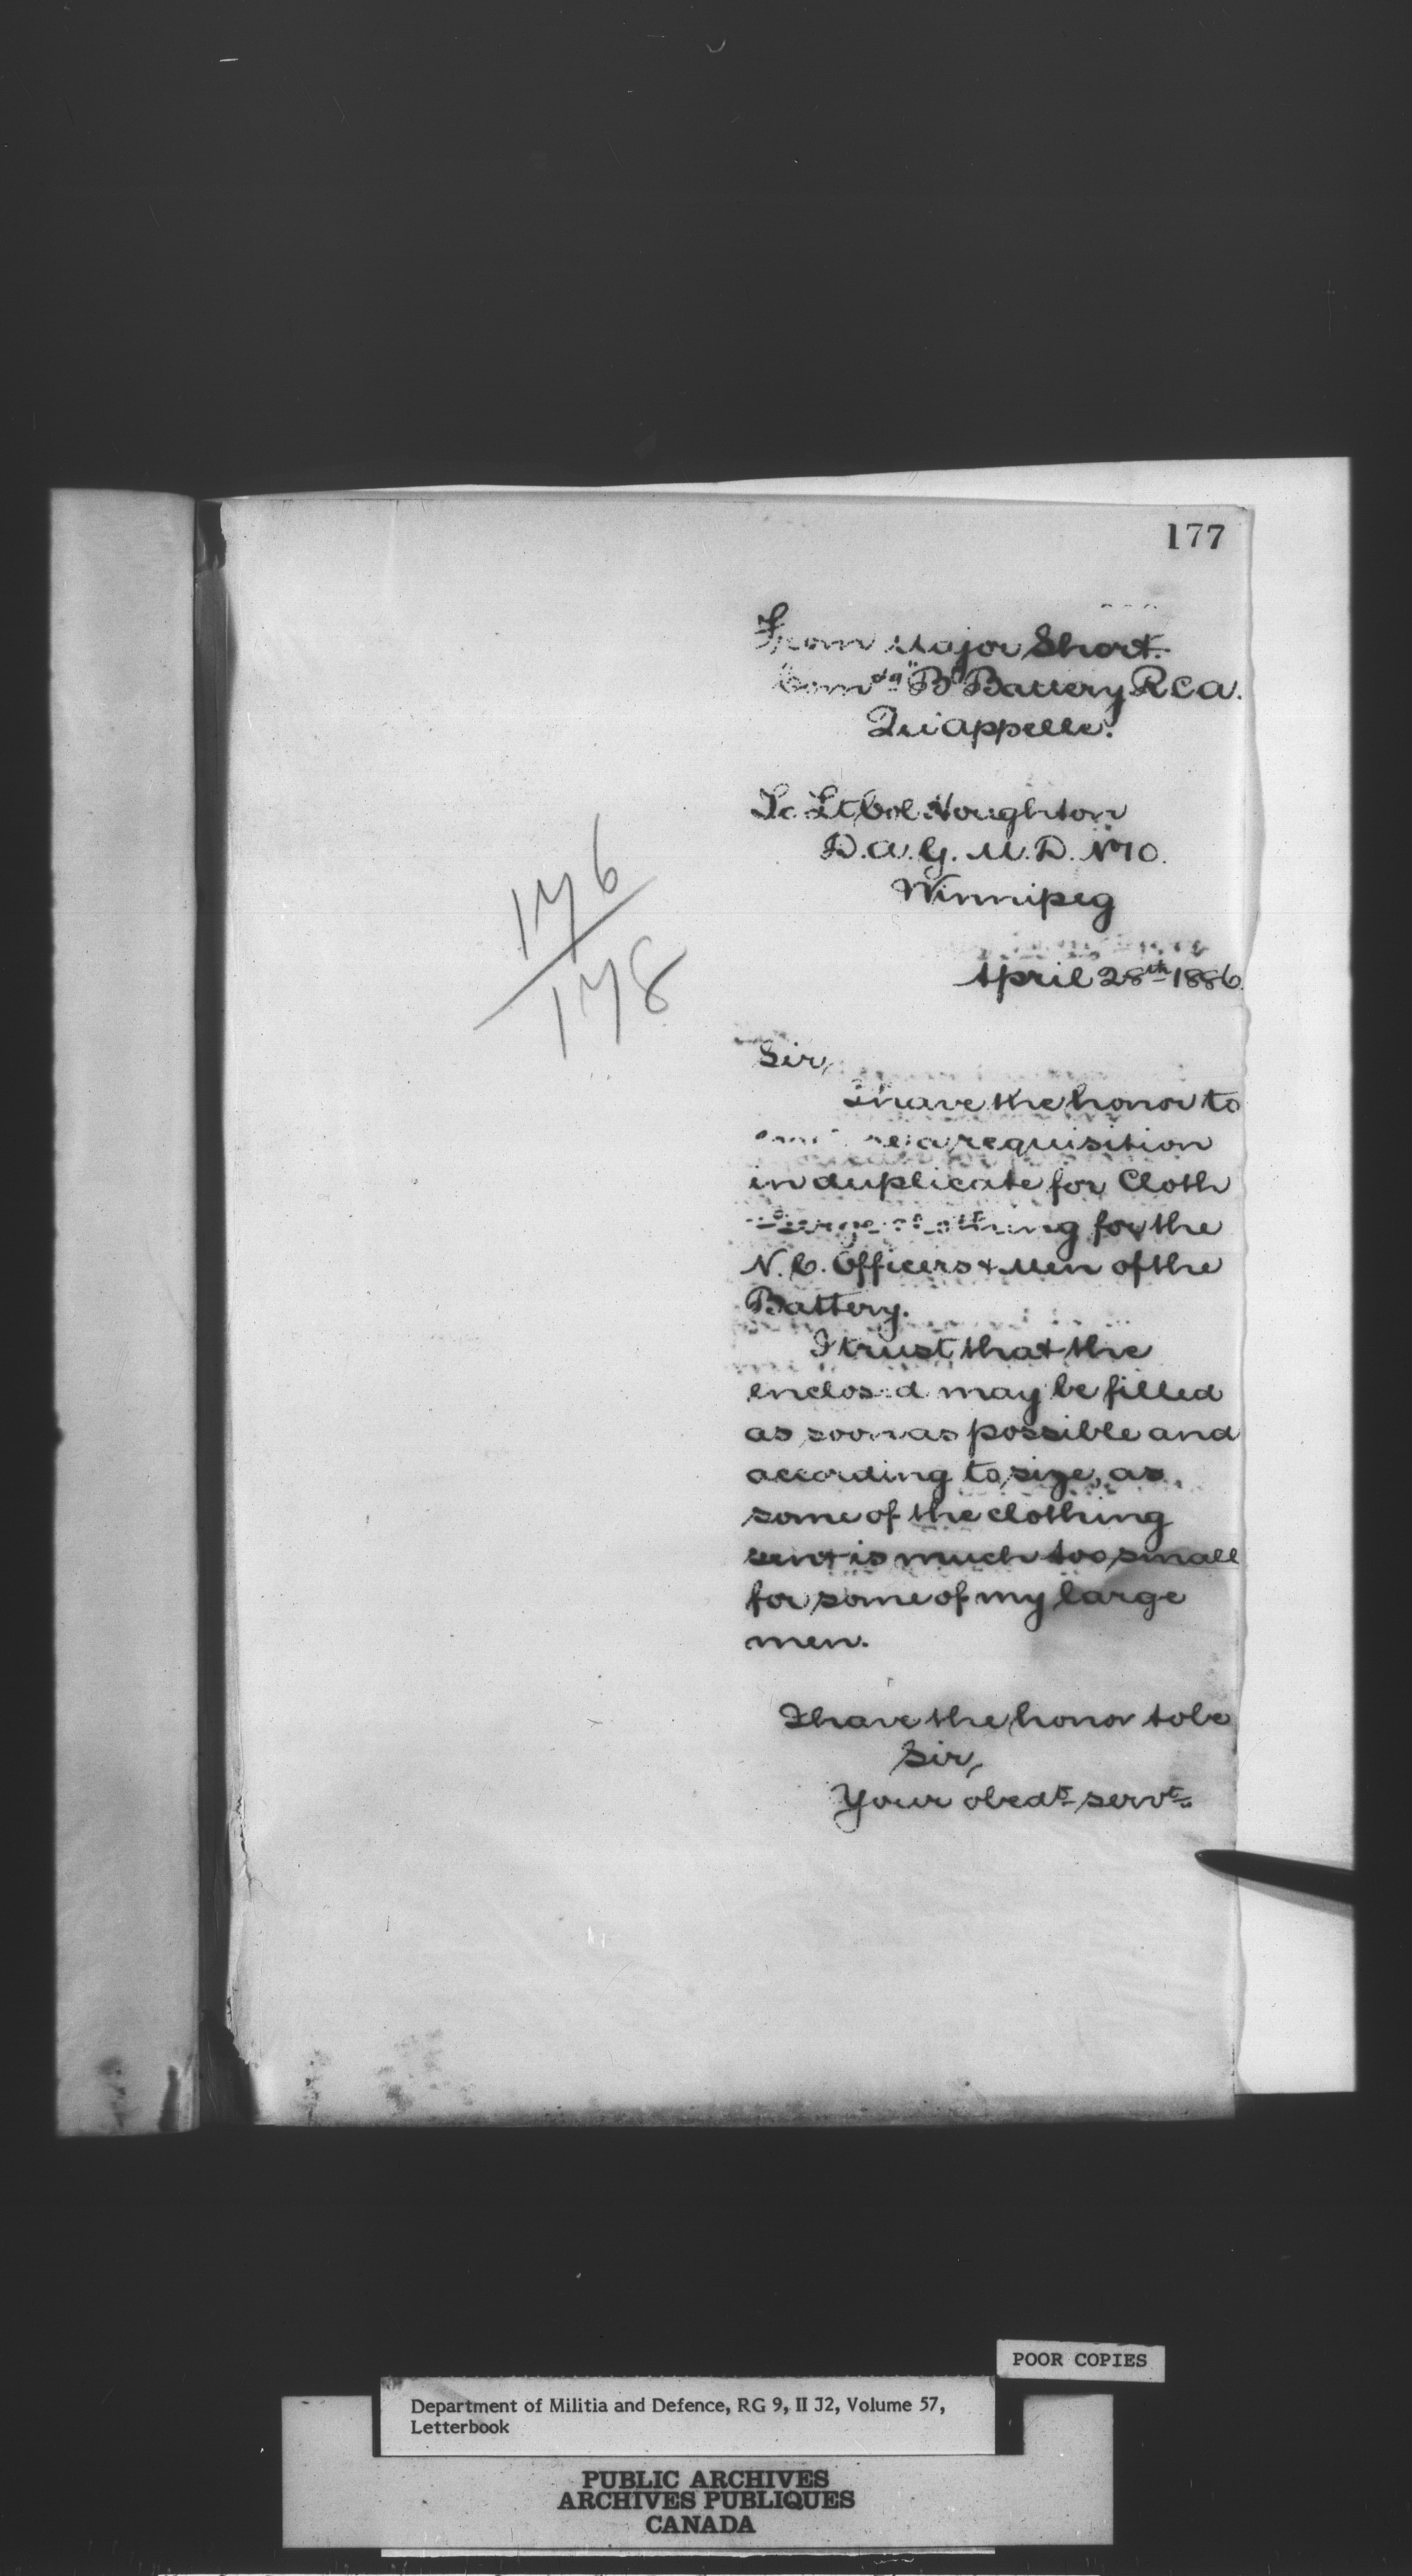 177
From Major Short.
Comdg "B" Battery R C A.
Qu'appelle.
To Lt Col Houghton
D. A. G. M. D. No 10.
Winnipeg
176
178
April 28th 1886
Sir,
I have the honor to
a requisition
in duplicate for Cloth
Serge clothing for the
N. C. Officers & Men of the
Battery.
I trust that the
enclosed may be filled
as soon as possible and
according to size, as
some of the clothing
sent is much too small
for some of my large
men.
I have the honor to be
Sir,
Your obedt servt
POOR COPIES
Department of Militia and Defence, RG 9, II J2, Volume 57,
Letterbook
PUBLIC ARCHIVES
ARCHIVES PUBLIQUES
CANADA